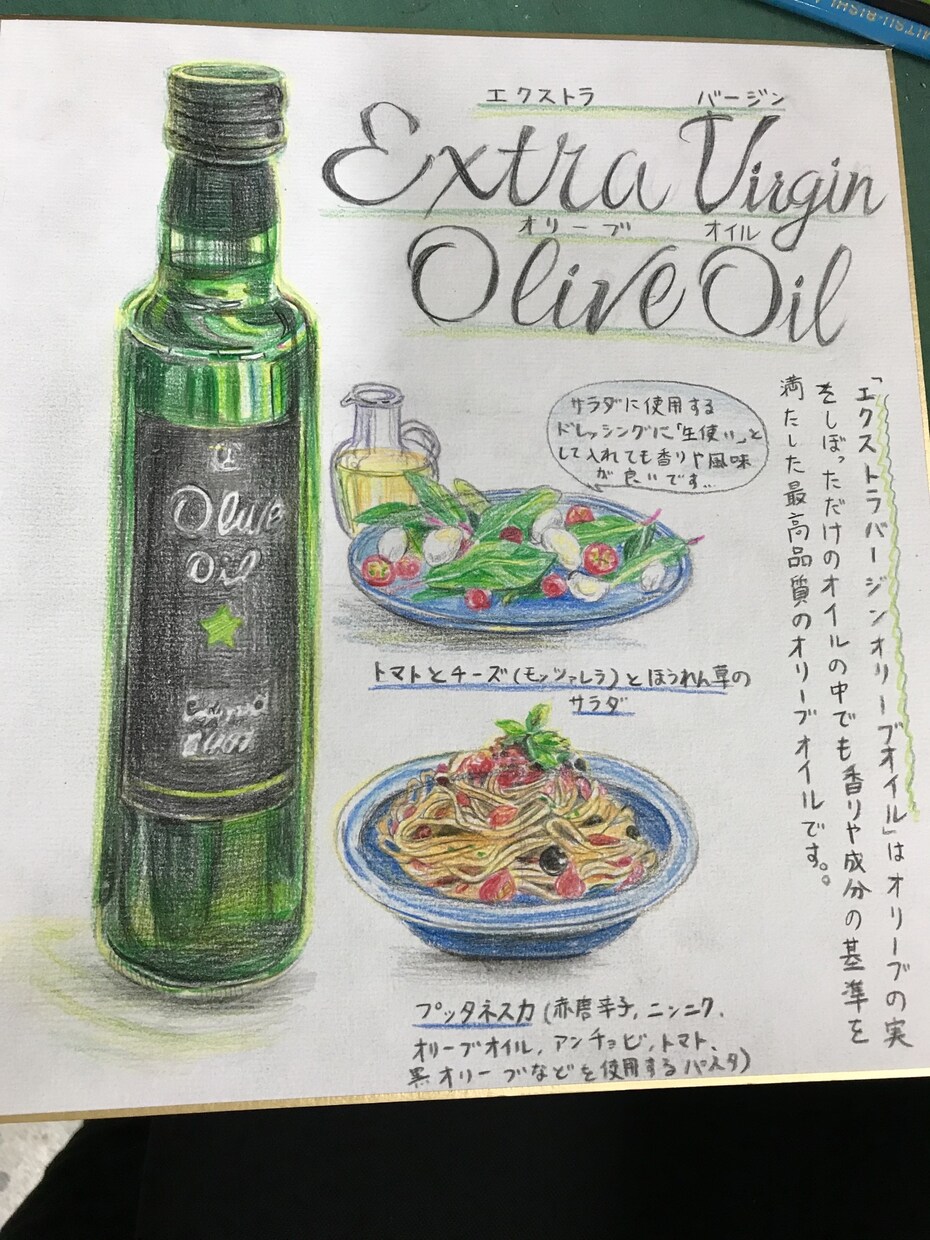 エクストラ バージン
Extra Virgin
オリーブ オイル
Olive Oil
「エクストラバージンオリーブオイル」はオリーブの実
をしぼっただけのオイルの中でも香りや成分の基準を
満たした最高品質のオリーブオイルです。
サラダに使用する
ドレッシングに「生使い」と
して入れても香りや風味
が良いです…
トマトとチーズ(モッツァレラ)とほうれん草の
サラダ
プッタネスカ(赤唐辛子,ニンニク,
オリーブオイル,アンチョビ,トマト、
黒オリーブなどを使用するパスタ)
Olive
Oil